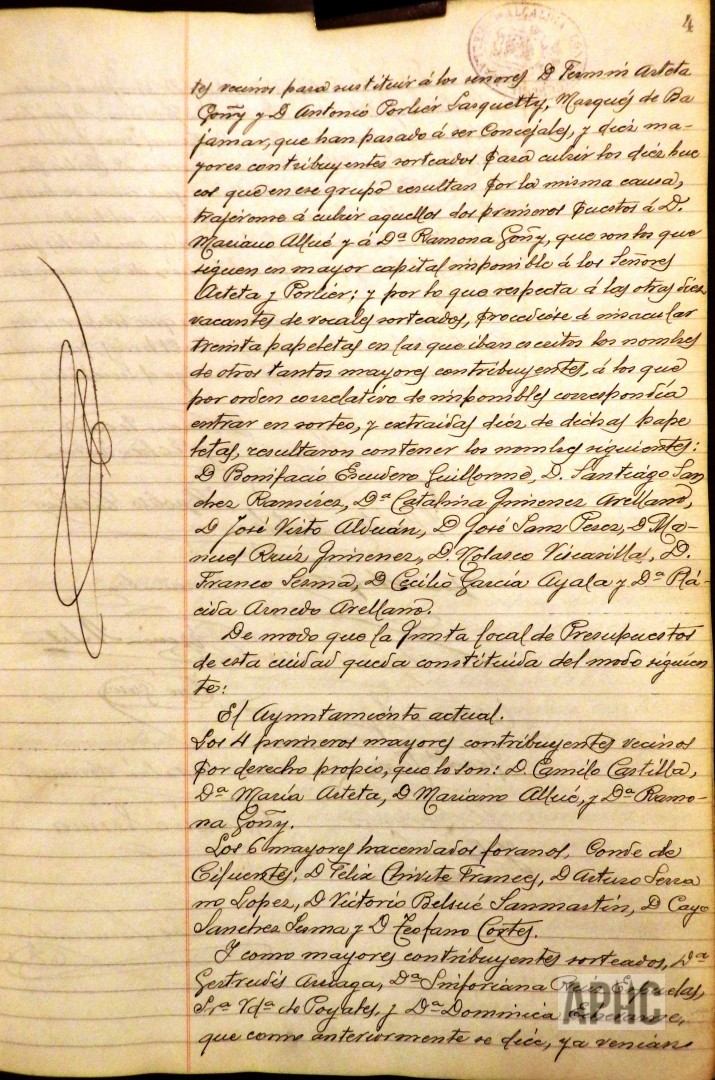 4
ALCALDIA
tes vecinos para sustituir á los señores D Fermin Arteta
Goñy y D Antonio Porlier Sasquetty, Marqués de Ba-
jamar, que han pasado á ser Concejales, y diez ma-
yores contribuyentes sorteados para cubrir los diez hue
cos que en ese grupo resultan por la misma causa,
trajéronse á cubir aquellos dos primeros puestos á D.
Mariano Allué y á Dª Ramona Goñy, que son los que
siguen en mayor capital imponible á los Señores
Arteta y Porlier; y por lo que respecta á las otras diez
vacantes de vocales sorteados, procediose á insacular
treinta papeletas en las que iban escritos los nombres
de otros tantos mayores contribuyentes, á los que
por orden correlativo de imponibles correspondia
entrar en sorteo, y extraidas diez de dichas pape
letas, resultaron contener los nombres siguientes:
D Bonifacio Escudero Guillorme, D. Santiago San
chez Ramirez, Dª Catalina Jimenez Arellano,
D José Virto Alduán, D José Sanz Perez, D Ma-
nuel Ruiz Jimenez, D. Nolasco Viscasillas, D.
Franco Sesma, D Cecilio García Ayala y Dª Plá-
cida Arnedo Arellano.
De modo que la Junta local de Presupuestos
de esta ciudad queda constituida del modo siguien
te:
El Ayuntamiento actual.
Los 4 primeros mayores contribuyentes vecinos
por derecho propio, que lo son: D. Camilo Castilla,
Dª María Arteta, D Mariano Allué, y Dª Ramo-
na Goñy.
Los 6 mayores hacendados foranos, Conde de
Cifuentes, D Felix Chivite Frances, D Arturo Serra
no Lopez, D Victorio Belsué Sanmartín, D Cayo
Sanchez Sesma y D Teofano Cortes.
Y como mayores contribuyentes sorteados, Dª
Gertrudis Arriaga, Dª Sinforiana
Srª Vdª de Poyales, y Dª Dominica
que como anteriormente se dice, ya venian
APHC